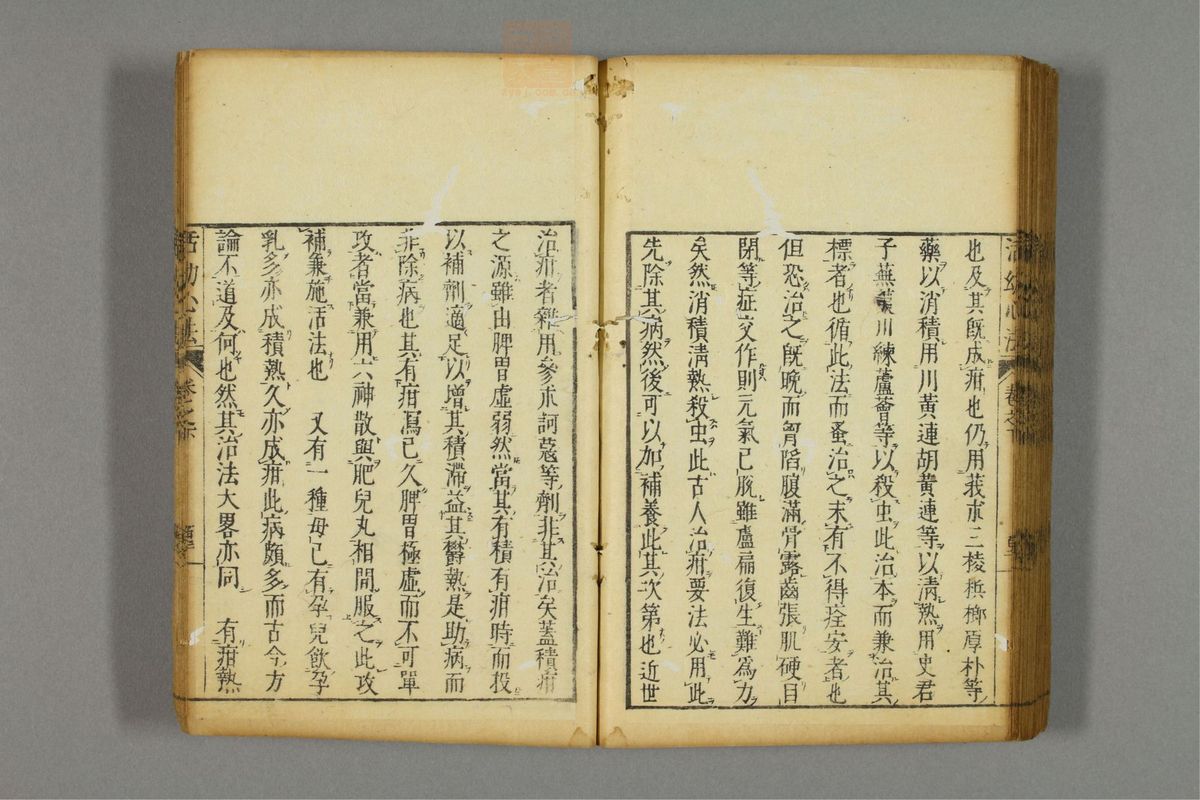 也及其既成疳也仍用莪朮三棱梹榔厚朴等
藥以消積用川黃連胡黃連等以淸熱用史君
子蕪荑川練蘆薈等以殺虫此治本而兼治其
標者也循此法而蚤治之未有不得痊安者也
但恐治之既晚而胷陷腹滿骨露齒張肌硬目
閉等症交作則元氣已脫雖盧扁復生難爲力
矣然消積淸熱殺虫此古人治疳要法必用此
先除其病然後可以加補養此其次第也近世
治疳者雜用參朮訶蔻等劑非其治矣蓋積疳
之源雖由脾胃虛弱然當其有積有疳時而投
以補劑適足以增其積滯益其鬱熱是助病而
非除病也其有疳瀉已久脾胃極虛而不可單
攻者當兼用六神散與肥兒丸相間服之此攻
補兼施活法也 又有一種母已有孕兒飲孕
乳多亦成積熱久亦成疳此病頗多而古今方
論不道及何也然其治法大畧亦同 有疳熱
活幼心法 卷之